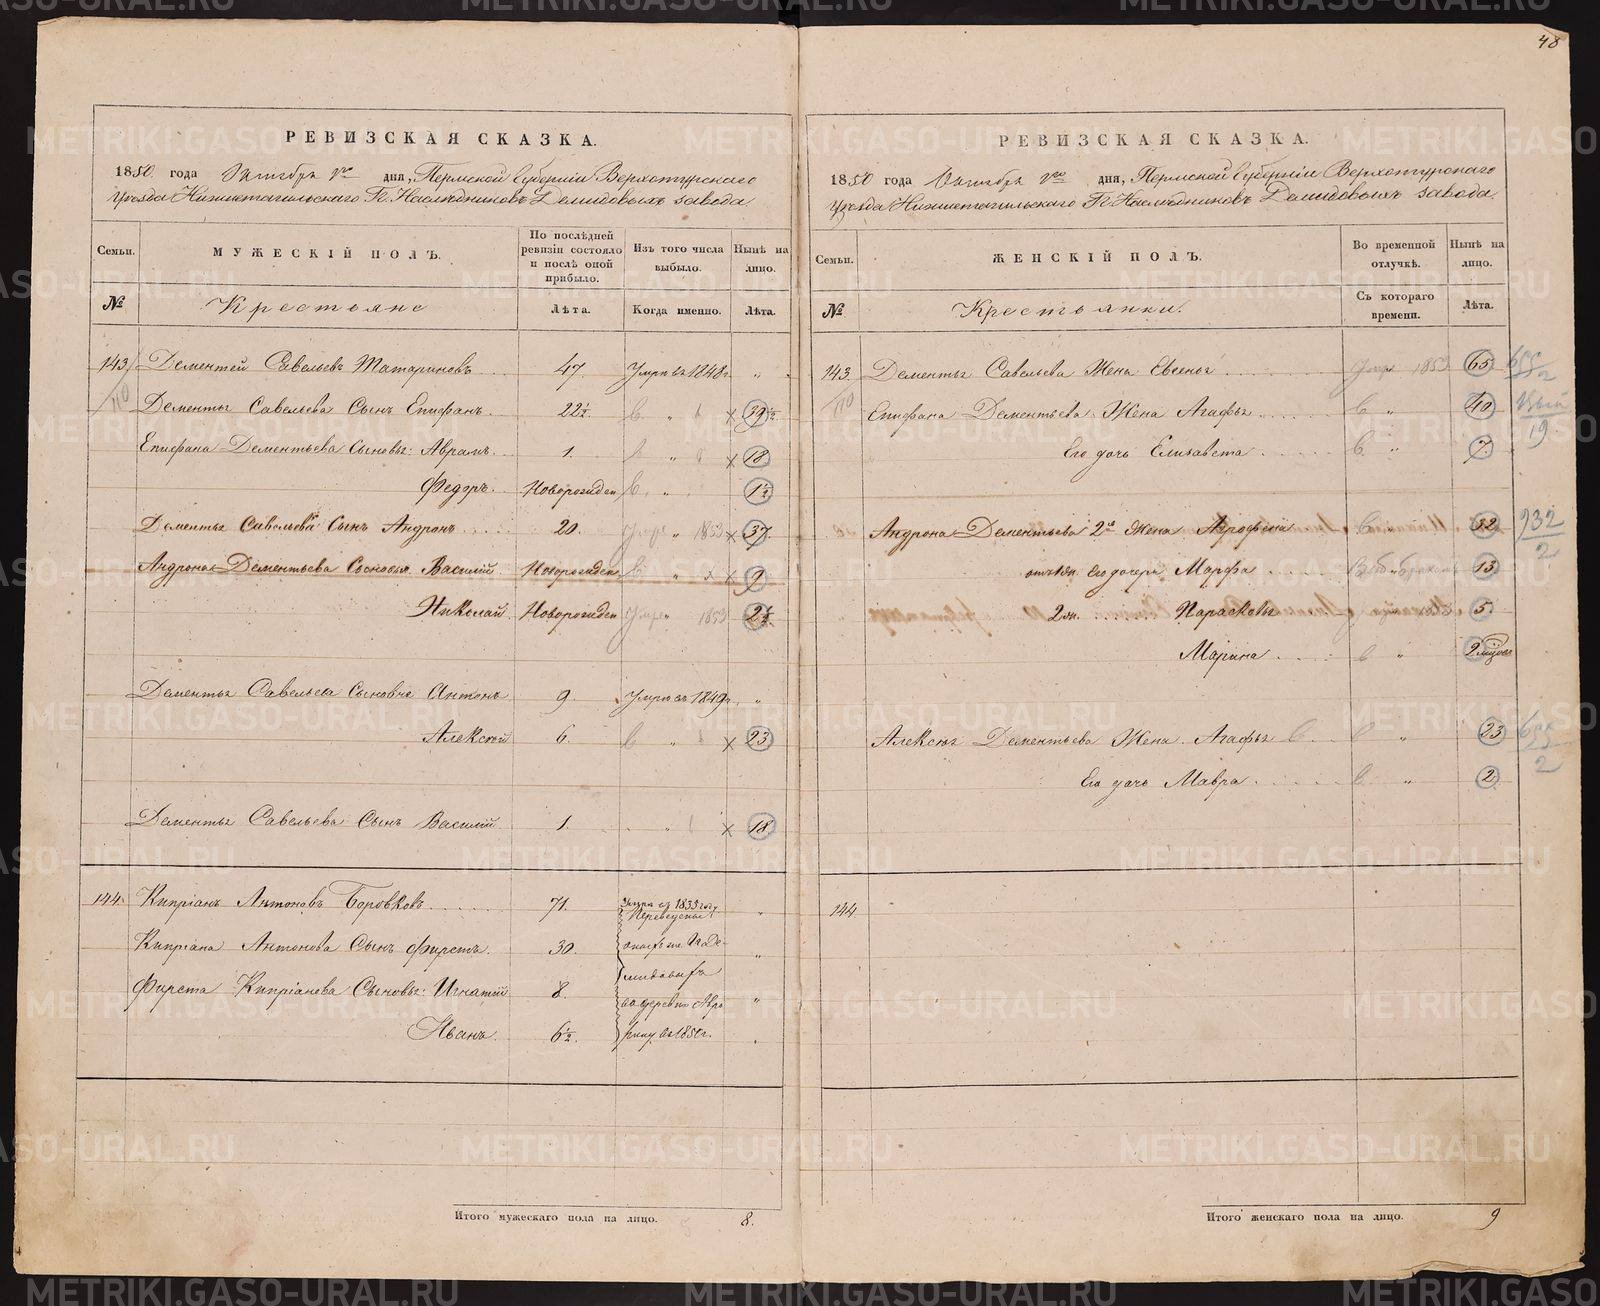 48
РЕВИЗСКАЯ СКАЗКА.
1850 года Октября дня, Пермской Губерніи Верхотурскаго
Уѣзда Нижнетагильскаго Гг. Наслѣдниковъ Демидовыхъ завода
Семьи.
МУЖЕСКІЙ ПОЛЪ.
По послѣдней ревизіи состояло и послѣ оной прибыло.
Изъ того числа выбыло.
Нынѣ на лицо.
№
Крестьяне
Лѣта.
Когда именно.
Лѣта.
143 Дементей Савельевъ Татариновъ 47 Умре въ 1848 г. "
110 Дементья Савельева Сынъ Епифанъ. 22½ " × 39½
Епифана Дементьева Сыновья: Аврамъ. 1. " × 18
Федоръ. Новорожден " 1½
Дементья Савельева Сынъ Андронъ 20. Умре " 1853 × 37.
Андрона Дементьева Сыновья Василій Новорожден " × 9
Николай Новорожден Умре 1853 2½
Дементья Савельева Сыновья Антонъ 9. Умре въ 1849 г. "
Алексѣй 6. " × 23
Дементья Савельева Сынъ Василій 1. " × 18
144 Кипріянъ Антоновъ Боровковъ 71. Умре въ 1835 году "
Кипріана Антонова Сынъ Фирстъ. 30. Переведены "
Фирста Кипріанова Сыновья: Игнатій 8. "
Иванъ. 6½. въ 1850 г.
Итого мужескаго пола на лицо. 8.
РЕВИЗСКАЯ СКАЗКА.
1850 года Октября дня, Пермской Губерніи Верхотурскаго
Уѣзда Нижнетагильскаго Гг. Наслѣдниковъ Демидовыхъ завода.
Семьи.
ЖЕНСКІЙ ПОЛЪ.
Во временной отлучкѣ.
Нынѣ на лицо.
№
Крестьянки.
Съ котораго времени.
Лѣта.
143. Дементья Савельева Жена Евгенья Умре 1853 65 655/2
110 Епифана Дементьева Жена Агафья " 40
19
Его дочь Елизавета " 7.
Андрона Дементьева 2я Жена Агрофена " 32 932/2
Его дочери Марфа 13
2 ж. Парасковья 5.
Марина " 2
Алексѣя Дементьева Жена Агафья " 23 655/2
Его дочь Мавра " 2.
144
Итого женскаго пола на лицо. 9
METRIKI.GASO-URAL.RU